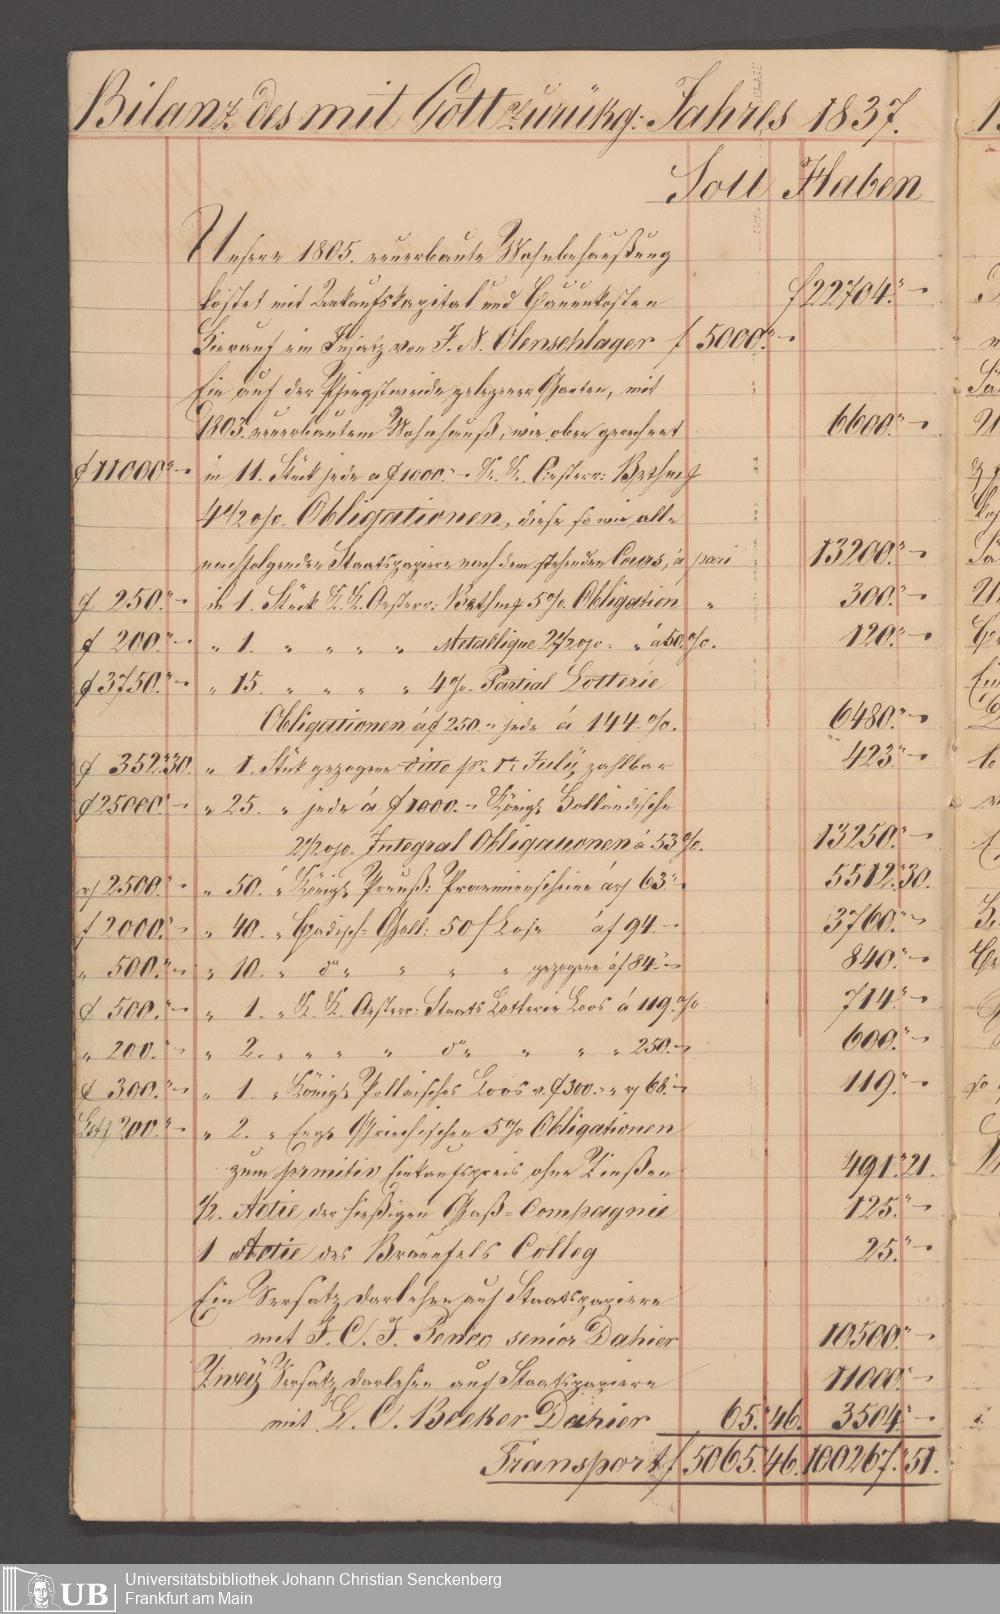 Bilanz des mit Gott zurükg: Jahres 1837.
Soll Haben
Unsere 1805. neuerbaute Wohnbehaußung
kostet mit Ankaufskapital und Bauunkosten f 22704.″ –
Hierauf ein Insatz von J. N. Olenschlager f 5000.″ –
Ein auf der Pfingstweide gelegener Garten, mit
1803. neuerbautem Wohnhauß, wie oben gerechnet 6600.″ –
f 11000.″ – in 11. Stück jede a f 1000.″ – K. K. Oesterr: Bethmf
4 1/2 o/o. Obligationen, diese so wie alle
nachfolgenden Staatspapiere nach dem stehenden Cours, á pari 13200.″ –
f 250.″ – in 1. Stück K. K. Oesterr: Bethmf 5 %. Obligation „ 300.″ –
f 200.″ – „ 1. „ „ „ „ Metallique 2 1/2 o/o. „ á 50 %. 120.″ –
f 3750.″ – „ 15. „ „ „ „ 4 %. Partial Lotterie
Obligationen á f 250. – jede á 144. %. 6480.″ –
f 352.″ 30. „ 1. Stük gezogene ditto pr. 1t July, zahlbar 423.″ –
f 25000.″ – „ 25. „ jede á f 1000. – Königl Holländische
2 1/2 o/o. Integral Obligationen á 53 %. 13250.″ –
„ 2500.″ – „ 50. „ Königl Preuß: Praemienscheine á 63.″ – 5512.″ 30.
f 2000.″ – „ 40. „ Badisch: 50 f Lose á f 94. – 3760.″ –
„ 500.″ – „ 10. „ do „ „ „ „ gezogene á f 84.″ – 840.″ –
f 500.″ – „ 1. „ K. K. Oesterr: Staats Lotterie Loos á 119. % 714.″ –
„ 200.″ – „ 2. „ „ „ „ do „ „ „ „ 250. – 600.″ –
f 300.″ – „ 1. „ Königl Pollnisches Loos v. f 300. – „ 68.″ – 119.″ –
200.″ – „ 2. „ Engl Griechischen 5 % Obligationen
zum primitiv Einkaufspreis ohne Zinßen 491.″ 21.
1/2. Actie der hießigen Gaß=Compagnie 125.″ –
1 Actie des Braunfels Colleg 25.″ –
Ein Versatz darlehen auf Staatspapiere
mit J. C. J. senior Dahier 10500.″ –
Zwey Versatz darlehen auf Staatspapiere 11000.″ –
mit G. C. Becker Dahier 65.″ 46. 3504.″ –
Transport f 5065.″ 46. 100267.″ 51.
UB
Universitätsbibliothek Johann Christian Senckenberg
Frankfurt am Main